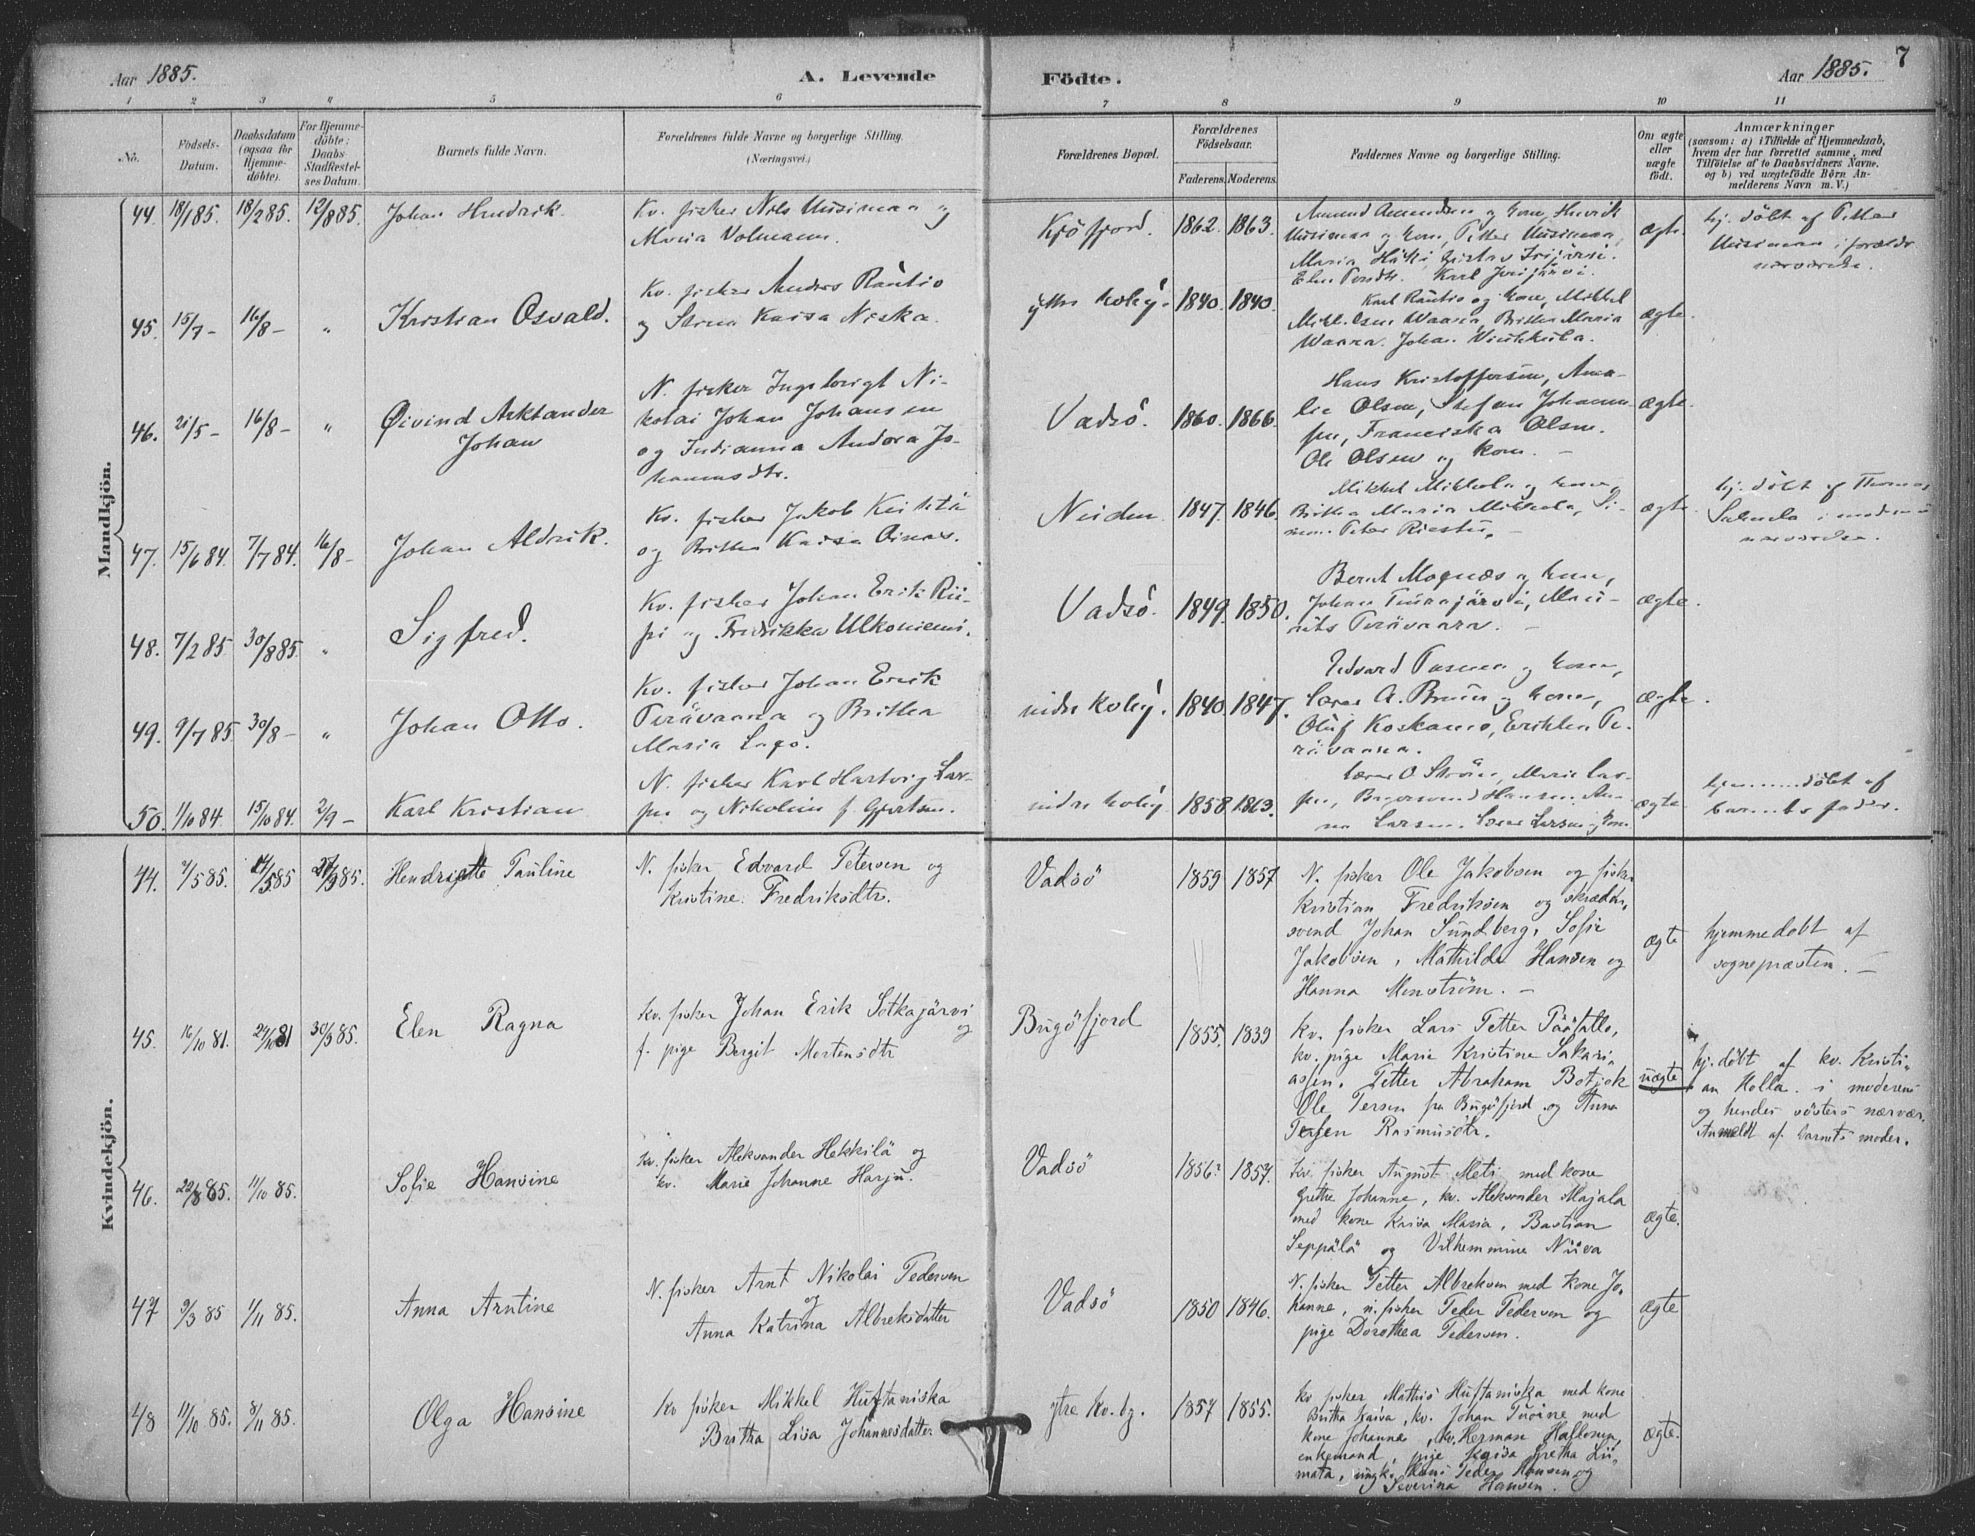 Aar 1885.
A. Levende
Födte.
Aar 1885.
7
1 2 3 4 5 6 7 8 9 10 11
No.
Födsels-
Datum.
Daabsdatum
(ogsaa for
Hjemme-
döbte).
For Hjemme-
döbte:
Daabs-
Stadfestel-
ses Datum.
Barnets fulde Navn.
Forældrenes fulde Navne og borgerlige Stilling.
(Næringsvei.)
Forældrenes Bopæl.
Forældrenes
Födselsaar.
Faderens. Moderens.
Faddernes Navne og borgerlige Stilling.
Om ægte
eller
uægte
født.
Anmærkninger
(saasom: a) i Tilfælde af Hjemmedaab,
hvem der har forrettet samme, med
Tilföielse af to Daabsvidners Navne,
og b) ved uægtefödte Börn An-
melderens Navn m. V.)
Mandkjön.
44. 18/1 85. 18/2 85. 12/8 85. Johan Hendrik.
Kv. fisker Nils Uusimaa og
Maria Volmann.
Kjöfjord. 1862. 1863.
Amund Amundsen og kone, Henrik
Uusimaa og kone, Petter Uusimaa,
ægte.
hj. döbt af Petter
Uusimaa i forældr.
nærværelse.
45. 15/7 - 16/8 - " Kristian Osvald.
Kv. fisker Anders Rautio
og Stina Kaisa Niska.
1840. 1840.
Karl Rautio og kone, Mikkel
Mikkelsen Waara, Britha Maria
Waara. Johan
ægte.
46. 21/5 - 16/8 - " Øivind Arktander
Johan
N. fisker Ingebrigt Ni-
kolai Johan Johansen
og Indianna Andora Jo-
hannesdtr.
Vadsö. 1860. 1866.
Hans Kristoffersen, Ama-
lie Olsen, Stefan Johann-
sen, Franciska Olsen.
Ole Olsen og kone. -
ægte.
47. 15/6 84. 7/7 84. 16/8 - Johan Aldrik.
Kv. fisker Jakob
og Britha Kaisa Oinas.
Neiden 1847. 1846.
Mikkel Mikkola og kone,
Britha Maria Mikkola, Si-
mon Peter
ægte.
hj. döbt af Thomas
i moderens
nærværelse.
48. 7/2 85 30/8 85. " Sigfred.
Kv. fisker Johan Erik Rii-
pi og Fredrikka Ulkoniemi.
Vadsö. 1849. 1850.
Bernt Mognæs og kone,
Johan
Perävaara. -
ægte.
49. 9/7 85 30/8 - " Johan Otto.
Kv. fisker Johan Erik
Perävaara og Britha
Maria
1840. 1847.
Edvard og kone,
Lærer A. Bruun og kone,
Oluf Koskamo, Erikka Pe-
rävaara.
ægte.
50. 1/10 84. 15/10 84. 2/9 - Karl Kristian
N. fisker Karl Hartvig Lar-
sen og Nikoline f. Gjertsen.
1858 1863.
Lærer O Ström, Marie Lar-
sen, Hansen An-
na Larsen. Lærer Larsen og kone
ægte
hjemmedöbt af
barnets fader.
Kvindekjön.
44. 85. 85 85. Hendriette Pauline
N. fisker Edvard Petersen og
Kristine Fredriksdtr.
Vadsö 1859 1857
N. fisker Ole Jakobsen og fisker
Kristian Fredriksen og skrædder-
svend Johan Sundberg, Sofie
Jakobsen, Mathilde Hansen og
Hanna Menström. -
ægte
hjemmedøbt af
sognepræsten. -
45. 16/10 81. 81 85. Elen Ragna
Kv. fisker Johan Erik Sotkajärvi
og
f. pige Bergit Mortensdtr
Bugöfjord 1855. 1839
Kv. fisker Lars Petter
kv. pige Marie Kristine Sakari-
assen, Petter Abraham
Ole Persen fra Bugöfjord og Anna
Persen Rasmusdtr.
uægte
hj. døbt af kv. Kristi-
an Holla. i moderens
og hendes søsters nærvær.
Anmeldt af barnets moder.
46. 85. 11/10 85. Sofie Hansine
kv. fisker Aleksander Hekkilä og
kv. Marie Johanne Harju.
Vadsö 1856. 1857.
Kv. fisker August Meti med kone
Grethe Johanne, kv. Aleksander Majala
med kone Kaisa Maria, Bastian
Seppälä og Vilhemmine Niiva
ægte.
47 9/3 85 1/11 85. Anna Arntine
N. fisker Arnt Nikolai Pedersen
og
Anna Katrina Albreksdatter
Vadsö 1850 1846.
N. fisker Petter Albreksen med kone Jo-
hanne, n. fisker Peder Pedersen og
pige Dorothea Pedersen.
ægte
48 11/10 85. 8/11 85. Olga Hansine
Kv fisker Mikkel Huftaniska
Britha Lisa Johannesdatter
ytre Kv. by. 1857 1855.
Kv fisker Mathis Huftaniska med kone
Britha Kaisa, kv. Johan med
kone Johanna, kv. Herman
enkemand, pige Kaisa Gretha
mata, ungk. Peder Hansen og
Severina Hansen.
ægte.